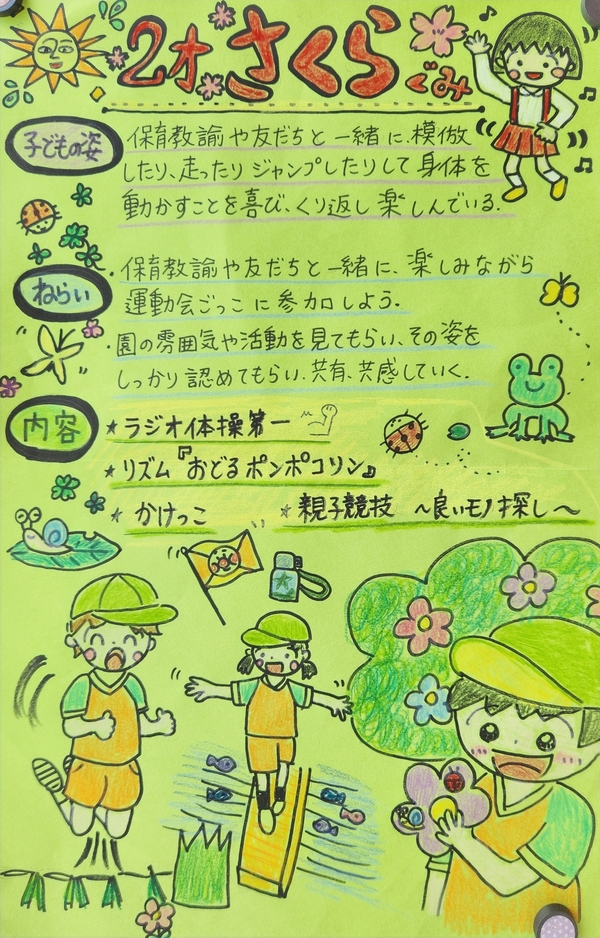 2才 さくらぐみ
子どもの姿
保育教諭や友だちと一緒に、模倣
したり、走ったりジャンプしたりして身体を
動かすことを喜び、くり返し楽しんでいる。
ねらい
・保育教諭や友だちと一緒に、楽しみながら
運動会ごっこに参加しよう。
・園の雰囲気や活動を見てもらい、その姿を
しっかり認めてもらい、共有、共感していく。
内容
★ラジオ体操第一
★リズム『おどるポンポコリン』
★かけっこ ★親子競技 ～良いモノ探し～